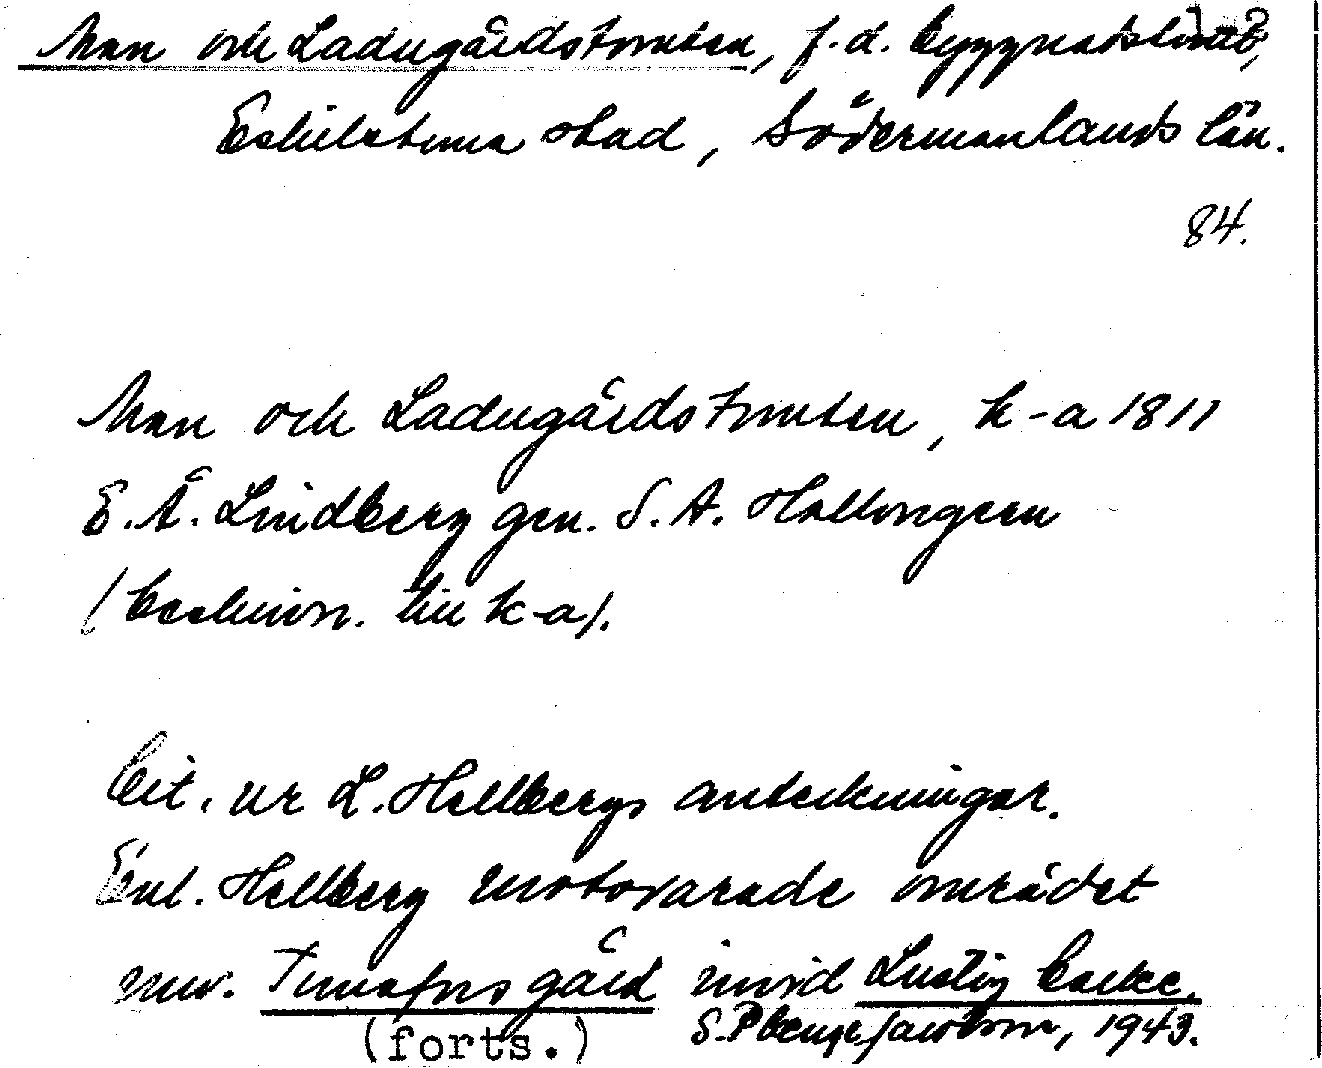 Mon och Ladugårdstomten, f.d. byggnadslott,
Eskilstuna stad, Södermanlands län.
84.
Mon och Ladugårdstomten, k-a 1811
E. Å. Lindberg gen. S. A. Hallongren
(beskrivn. till k-a).
Cit. ur L. Hellbergs anteckningar.
Enl. Hellberg motsvarade området
nuv. Tunafors gård invid Lustig backe.
S. P. Bengt Jacobson, 1943.
(forts.)